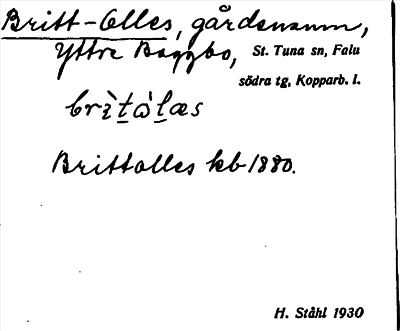 Britt-Olles, gårdsnamn,
Yttre Baggbo, St. Tuna sn, Falu
södra tg, Kopparb. l.
brìtòlæs
Brittolles kb 1880.
H. Ståhl 1930